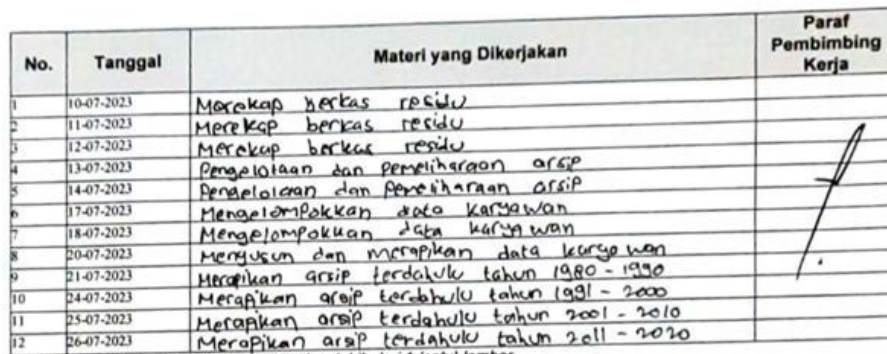 No. Tanggal Materi yang Dikerjakan Paraf Pembimbing Kerja
1 10-07-2023 Merekap berkas residu
2 11-07-2023 Merekap berkas residu
3 12-07-2023 Merekap berkas residu
4 13-07-2023 Pengelolaan dan Pemeliharaan arsip
5 14-07-2023 Pengelolaan dan Pemeliharaan arsip
6 17-07-2023 Mengelompokkan data karyawan
7 18-07-2023 Mengelompokkan data karyawan
8 20-07-2023 Menyusun dan merapikan data karyawan
9 21-07-2023 Merapikan arsip terdahulu tahun 1980 - 1990
10 24-07-2023 Merapikan arsip terdahulu tahun 1991 - 2000
11 25-07-2023 Merapikan arsip terdahulu tahun 2001 - 2010
12 26-07-2023 Merapikan arsip terdahulu tahun 2011 - 2020